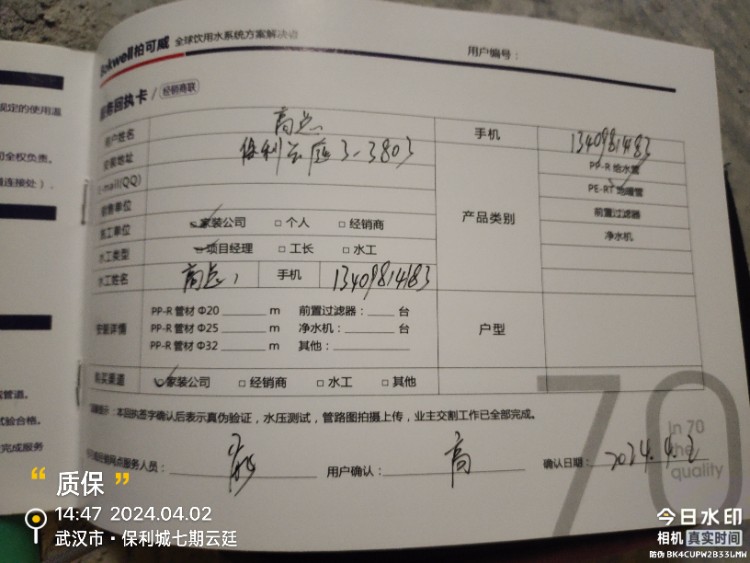 Bokwell柏可威 全球饮用水系统方案解决者
用户编号：
服务回执卡 / 经销商联
客户姓名 高总 手机 13409814183
安装地址 保利云庭 3-3803
E-mail(QQ)
销售单位
施工单位 家装公司 □ 个人 □ 经销商
水工类型 项目经理 □ 工长 □ 水工
水工姓名 高总 手机 13409814183
产品类别
PP-R 给水管
PE-RT 地暖管
前置过滤器
净水机
安装详情
PP-R 管材 Φ20 m 前置过滤器： 台
PP-R 管材 Φ25 m 净水机： 台
PP-R 管材 Φ32 m 其他：
户型
购买渠道 家装公司 □ 经销商 □ 水工 □ 其他
温馨提示：本回执签字确认后表示真伪验证，水压测试，管路图拍摄上传，业主交割工作已全部完成。
服务人员： 用户确认： 高 确认日期： 2024.4.2
70
In 70
the
quality
规定的使用温
司全权负责。
连接处）、
管道。
试验合格。
完成服务
“ 质保 ”
14:47 2024.04.02
武汉市·保利城七期云廷
今日水印
相机 真实时间
防伪 BK4CUPW2B33LMW